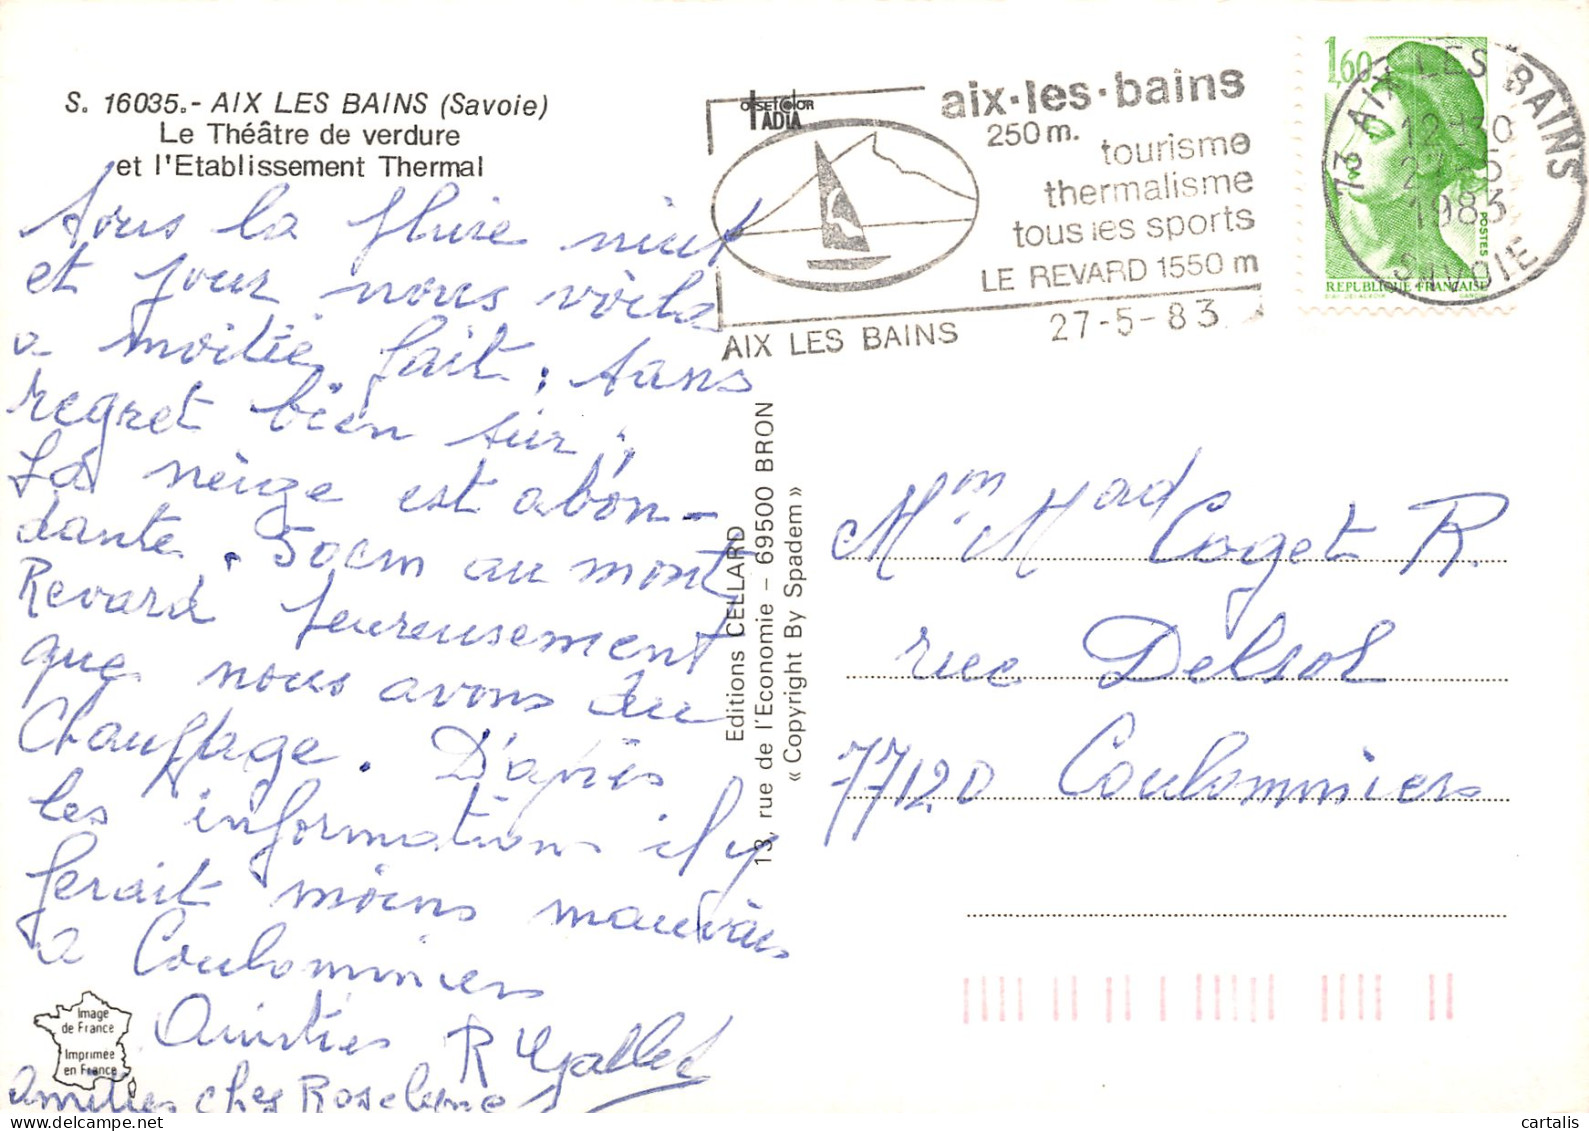 S. 16035.- AIX LES BAINS (Savoie)
Le Théâtre de verdure
et l'Etablissement Thermal
Sous la pluie nuit
et jour nous voila
a moitié fait, sans
regret bien sur,
La neige est abon-
dante. 50cm au mont
Revard heureusement
que nous avons du
Chauffage. D'après
les informations il y
ferait moins mauvais
a Coulommiers
Amitiés R Gallet
Amitiés chez Roselyne
Image
de France
Imprimée
en France
Editions CELLARD
13, rue de l'Economie - 69500 BRON
« Copyright By Spadem »
OffSETCOLOR
TADIA
aix·les·bains
250 m.
tourisme
thermalisme
tous les sports
LE REVARD 1550 m
AIX LES BAINS 27-5-83
1,60
POSTES
REPUBLIQUE FRANÇAISE
D'AP. DELACROIX GANDON
73 AIX LES BAINS
12H30
27-5
1983
SAVOIE
Mm Mad Coget R.
rue Delsol
77120 Coulommiers
cartalis